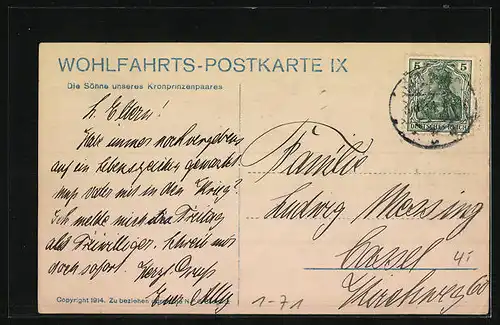 WOHLFAHRTS-POSTKARTE IX
Die Söhne unseres Kronprinzenpaares
5 5
DEUTSCHES REICH
L. Eltern!
Habe immer noch vergebens
auf ein Lebenszeichen gewartet
Vater mit in den Krieg?
Ich melde mich Freitag
als Freiwilliger, schreibt mir
doch sofort. Herzl. Gruß
Euer Willy
Familie
Ludwig Messing
Cassel
Kirchweg 60
Copyright 1914. Zu beziehen
1-71